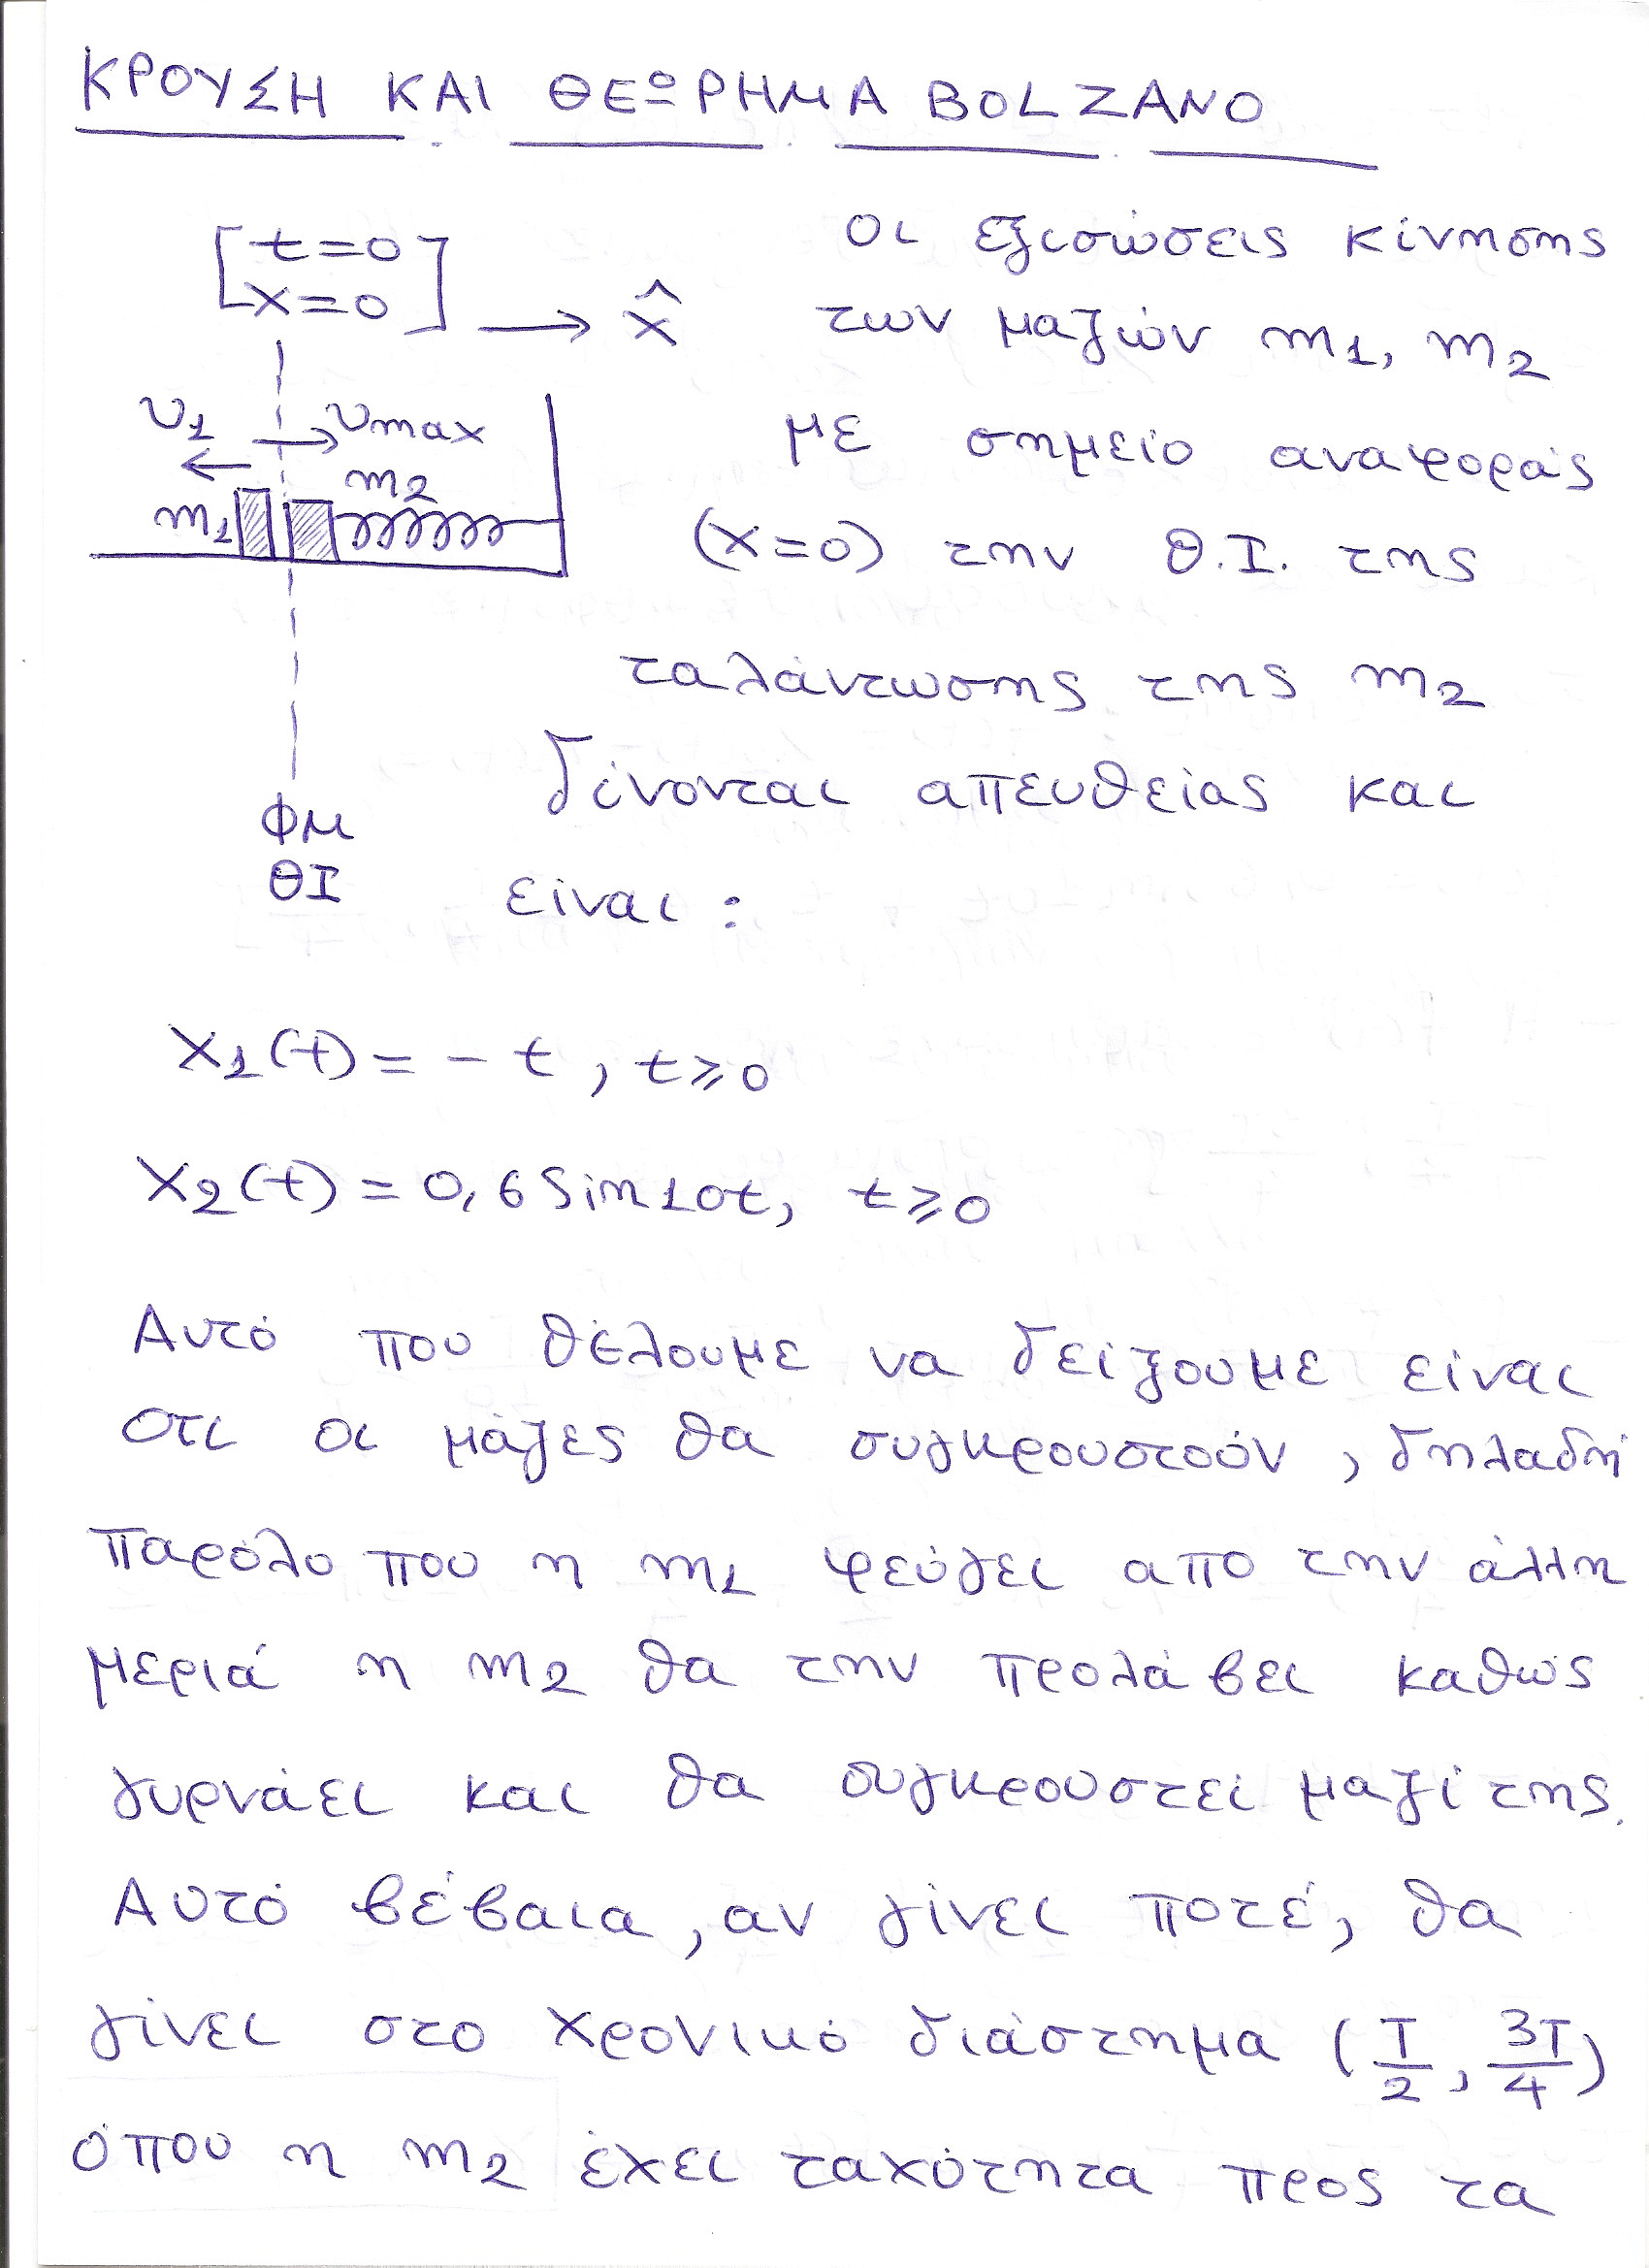 ΚΡΟΥΣΗ ΚΑΙ ΘΕΩΡΗΜΑ BOLZANO
[t=0
x=0]
→ x̂
υ1
υmax
m1
m2
ΦΜ
ΘΙ
οι εξισώσεις κίνησης
των μαζών m1, m2
με σημείο αναφοράς
(x=0) την Θ.Ι. της
ταλάντωσης της m2
δίνονται απευθείας και
είναι :
x1(t) = - t , t⩾0
x2(t) = 0,6 sin10t, t⩾0
Αυτό που θέλουμε να δείξουμε είναι
οτι οι μάζες θα συγκρουστούν, δηλαδή
παρόλο που η m1 φεύγει απο την άλλη
μεριά η m2 θα την προλάβει καθώς
γυρνάει και θα συγκρουστεί μαζί της.
Αυτό βέβαια, αν γίνει ποτέ, θα
γίνει στο χρονικό διάστημα (T/2, 3T/4)
όπου η m2 έχει ταχύτητα προς τα